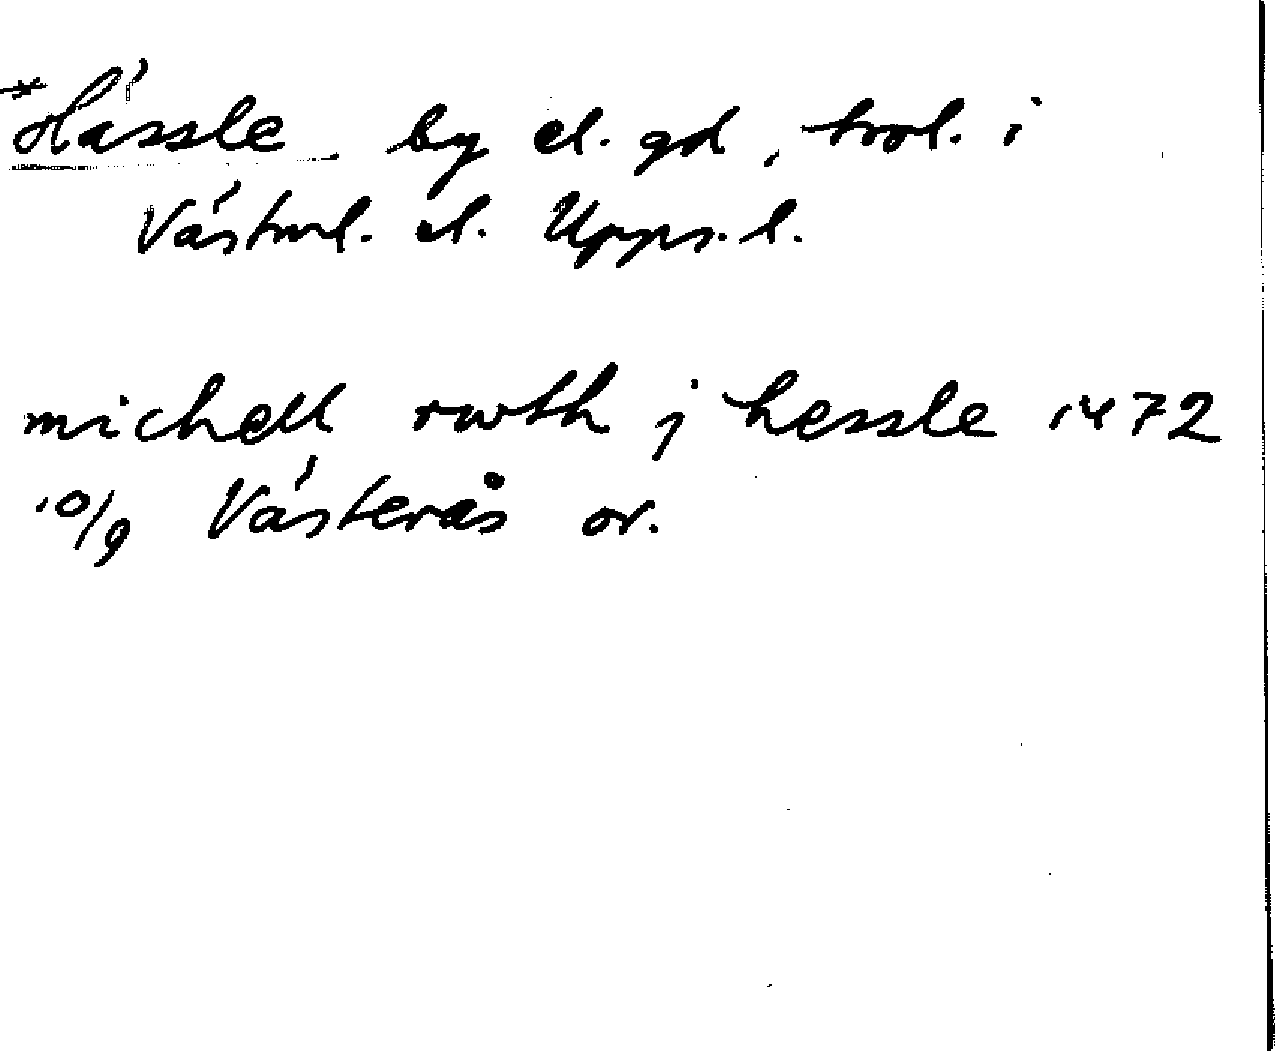 *Hässle by el. gd, trol. i
Västml. el. Upps. l.
michell rwth j hessle 1472
10/9 Västerås or.